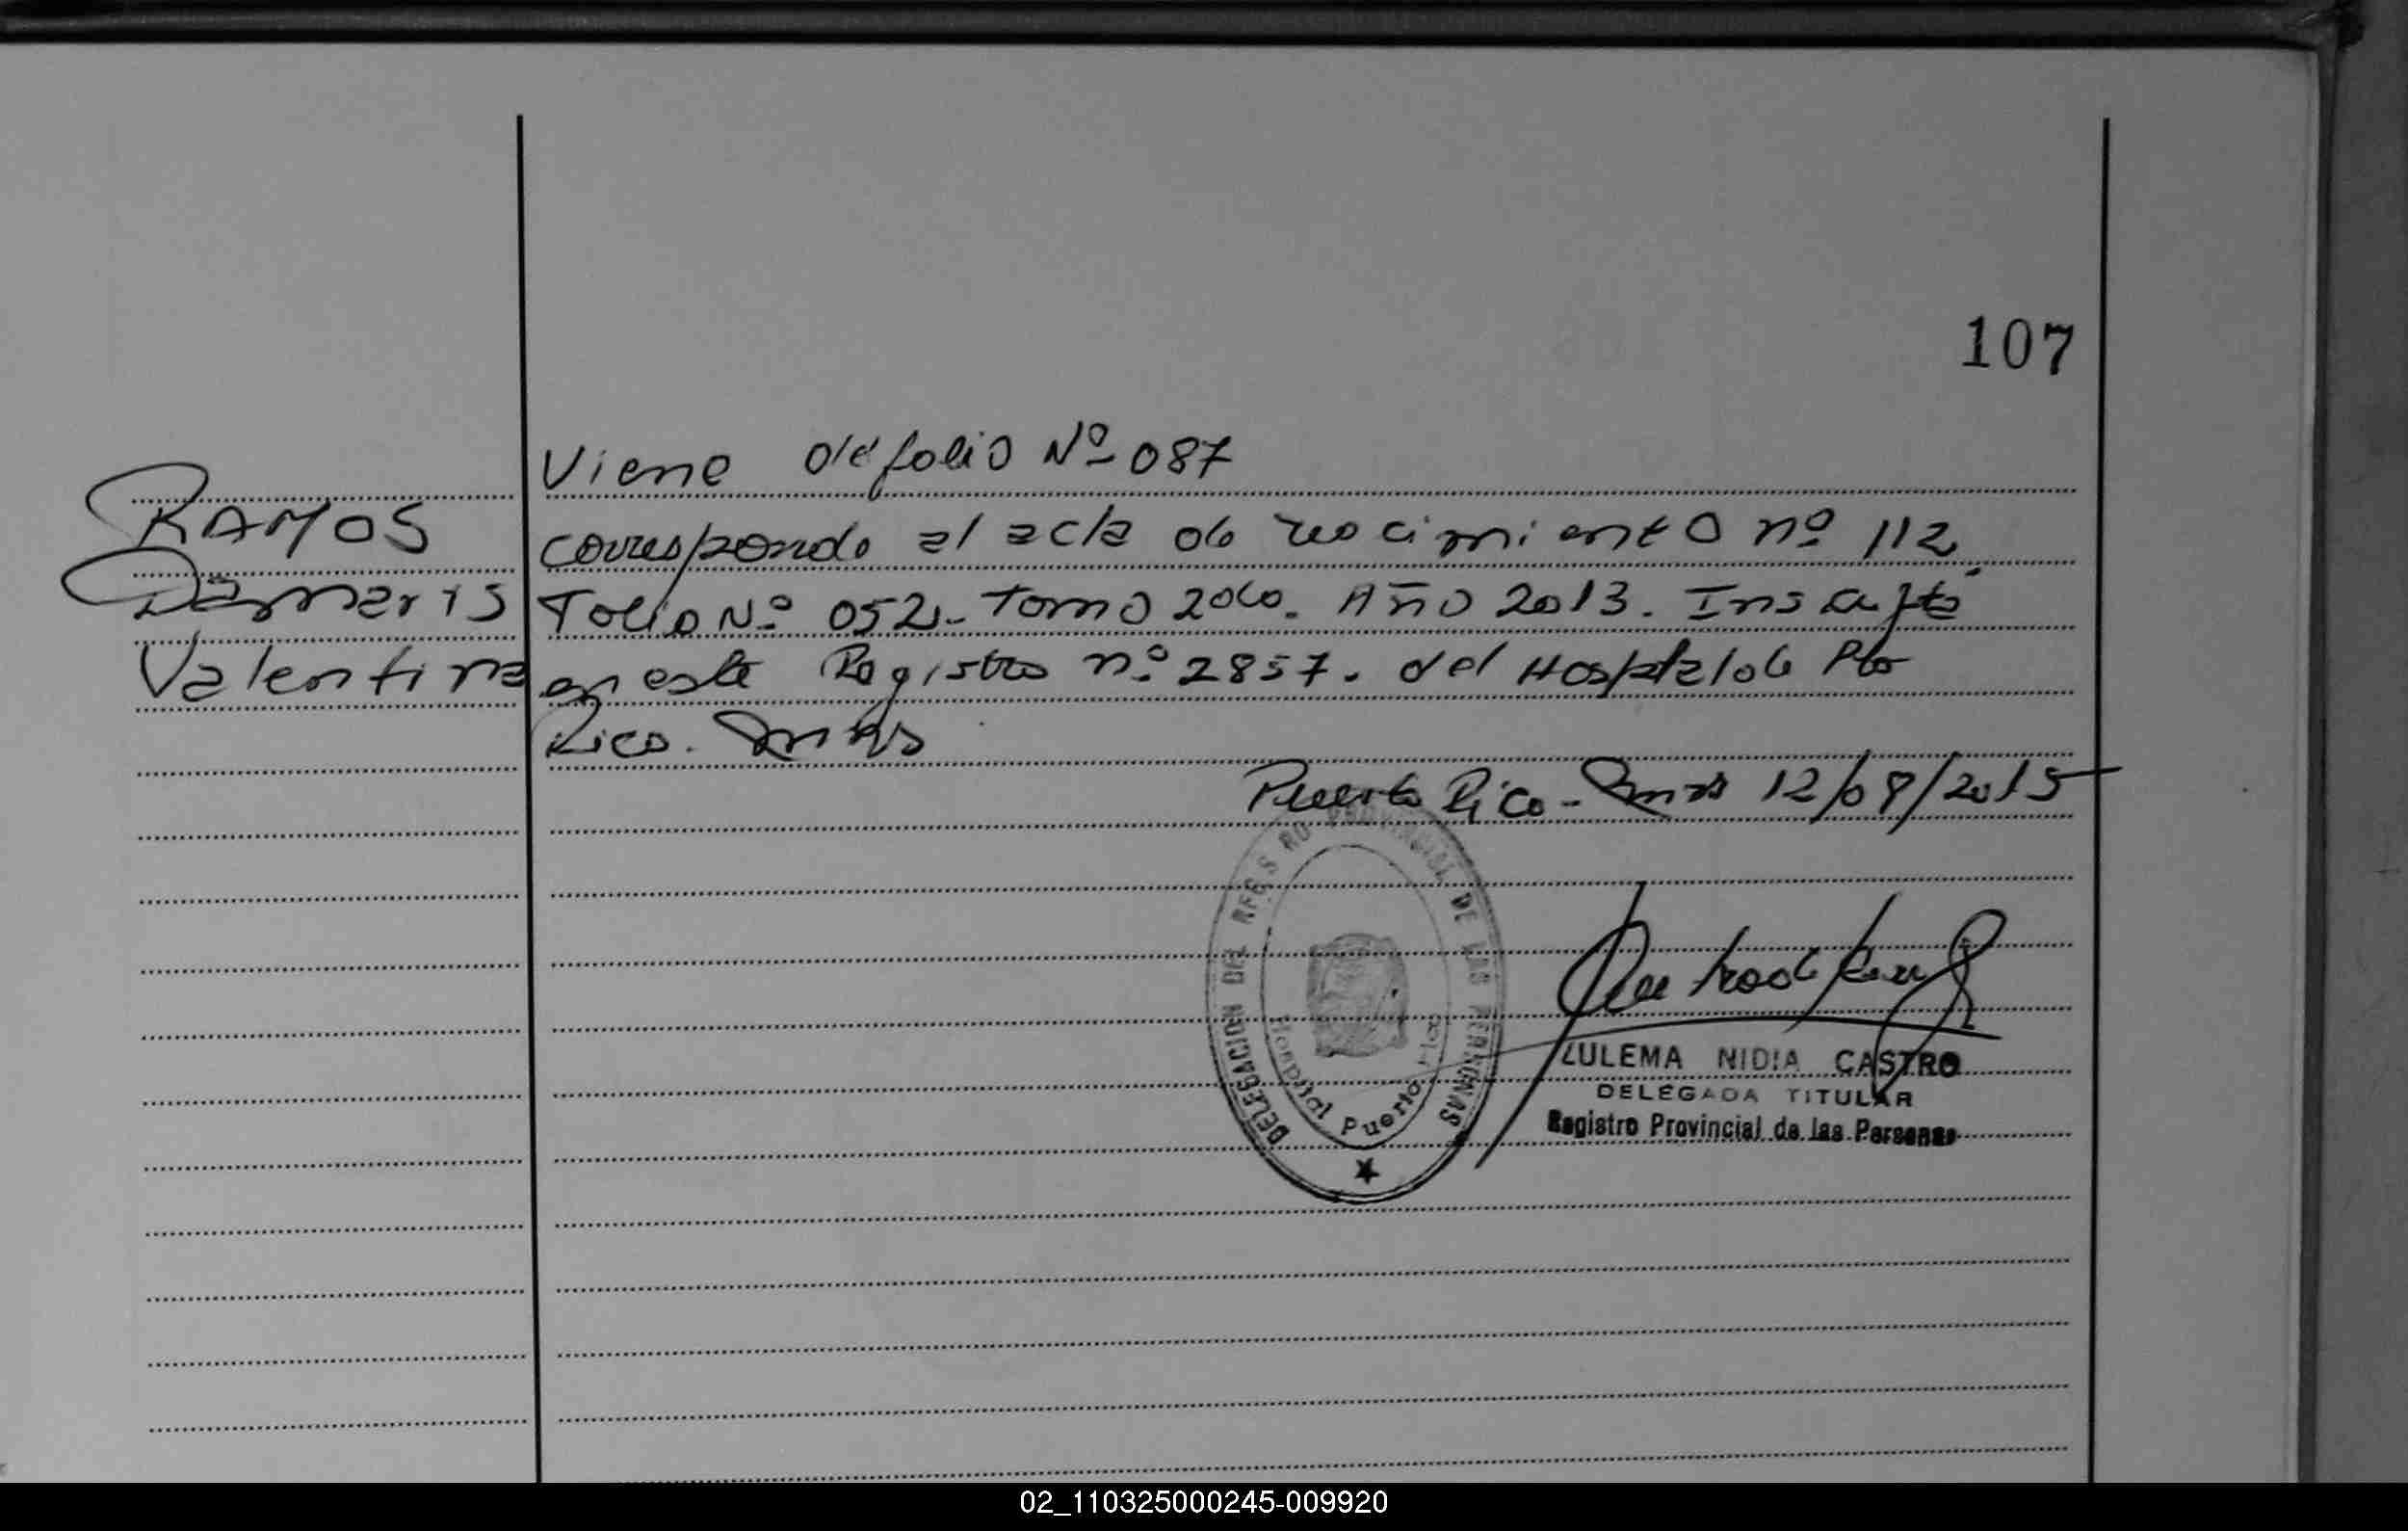 107
Viene del folio Nº 087
RAMOS
corresponde al acta de nacimiento nº 112.
Damaris
Folio Nº 052. Tomo 2do. Año 2013. Inscripta
Valentina
en este Registro nº 2857. del Hospital de Pto
Rico. Mnes
Puerto Rico - Mnes 12/08/2015
DELEGACION DEL REGISTRO PROVINCIAL DE LAS PERSONAS
Hospital Puerto Rico
ZULEMA NIDIA CASTRO
DELEGADA TITULAR
Registro Provincial de las Personas
02_110325000245-009920